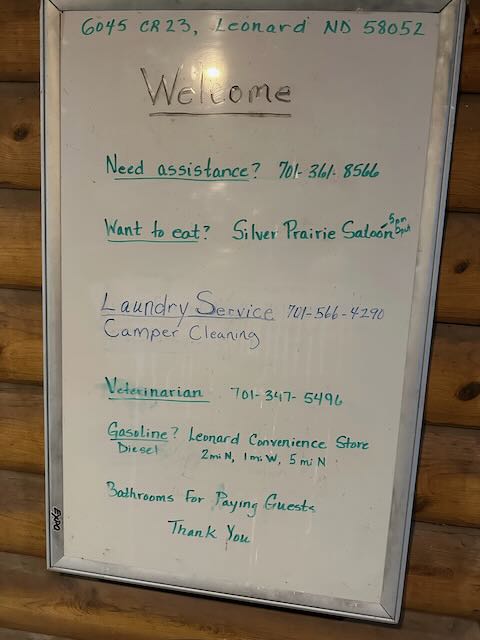 6045 CR23, Leonard ND 58052
Welcome
Need assistance? 701-361-8566
Want to eat? Silver Prairie Saloon 5pm
Laundry Service 701-566-4290
Camper Cleaning
Veterinarian 701-347-5496
Gasoline? Leonard Convenience Store
Diesel 2mi N, 1mi W, 5mi N
Bathrooms For Paying Guests
Thank You
EXPO